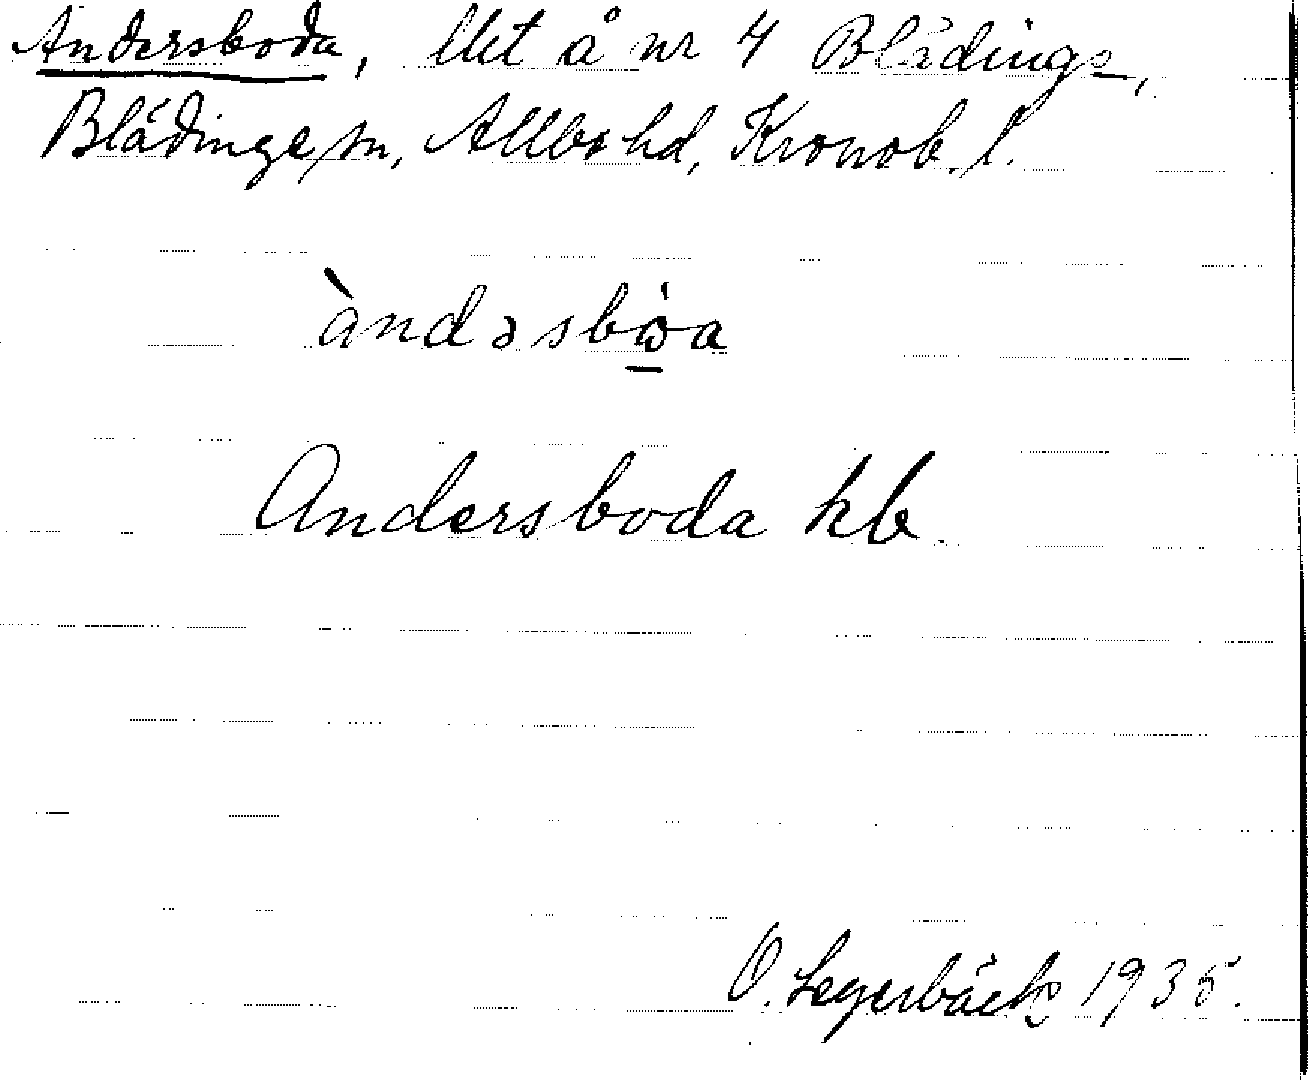 Andersboda, llet å nr 4 Blädinge,
Blädinge sn, Allbo hd, Kronob. l.
àndəsbω̇a
Andersboda kb.
O. Legerbäck 1935.